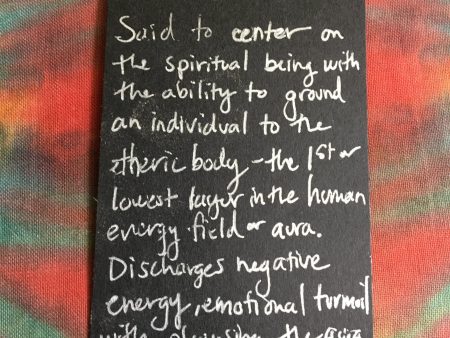 Said to center on
the spiritual being with
the ability to ground
an individual to the
etheric body - the 1st or
lowest layer in the human
energy field or aura.
Discharges negative
energy, emotional turmoil
the